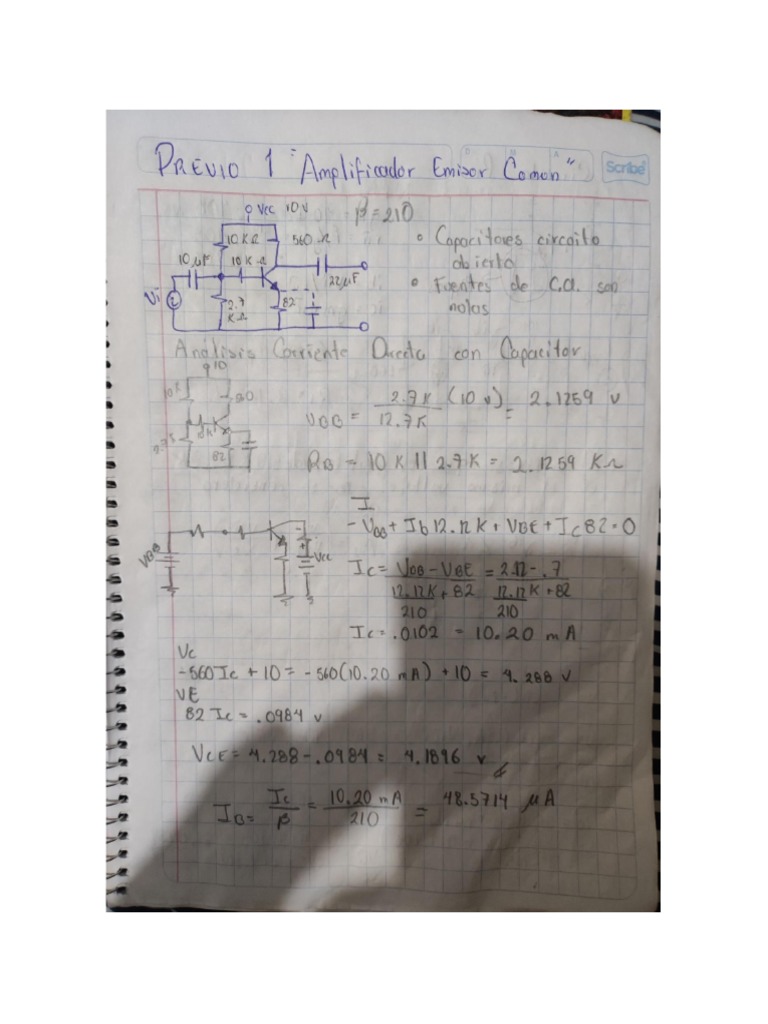 PREVIO 1 "Amplificador Emisor Comon"
Scribe
Vcc 10V
β=210
10KΩ
560Ω
10μF
10KΩ
22μF
Vi
2.7
KΩ
82
• Capacitores circoito
abierto
• Fuentes de C.A. son
nolas
Análisis Corriente Directa con Capacitor
10
10K
10K
82
VBB = 2.7K/12.7K (10 v) = 2.1259 v
RB = 10K||2.7K = 2.1259 KΩ
VBB
Vcc
I
-VBB + Ib12.12K + VBE + Ic82=0
Ic= VBB-VBE / 12.12K/210 + 82 = 2.12-.7 / 12.12K/210 + 82
Ic=.0102 = 10.20 mA
Vc
-560Ic + 10 = -560(10.20 mA) + 10 = 4.288 v
VE
82 Ic = .0984 v
VCE = 4.288-.0984 = 4.1896 v
IB= Ic/β = 10.20 mA/210 = 48.5714 μA